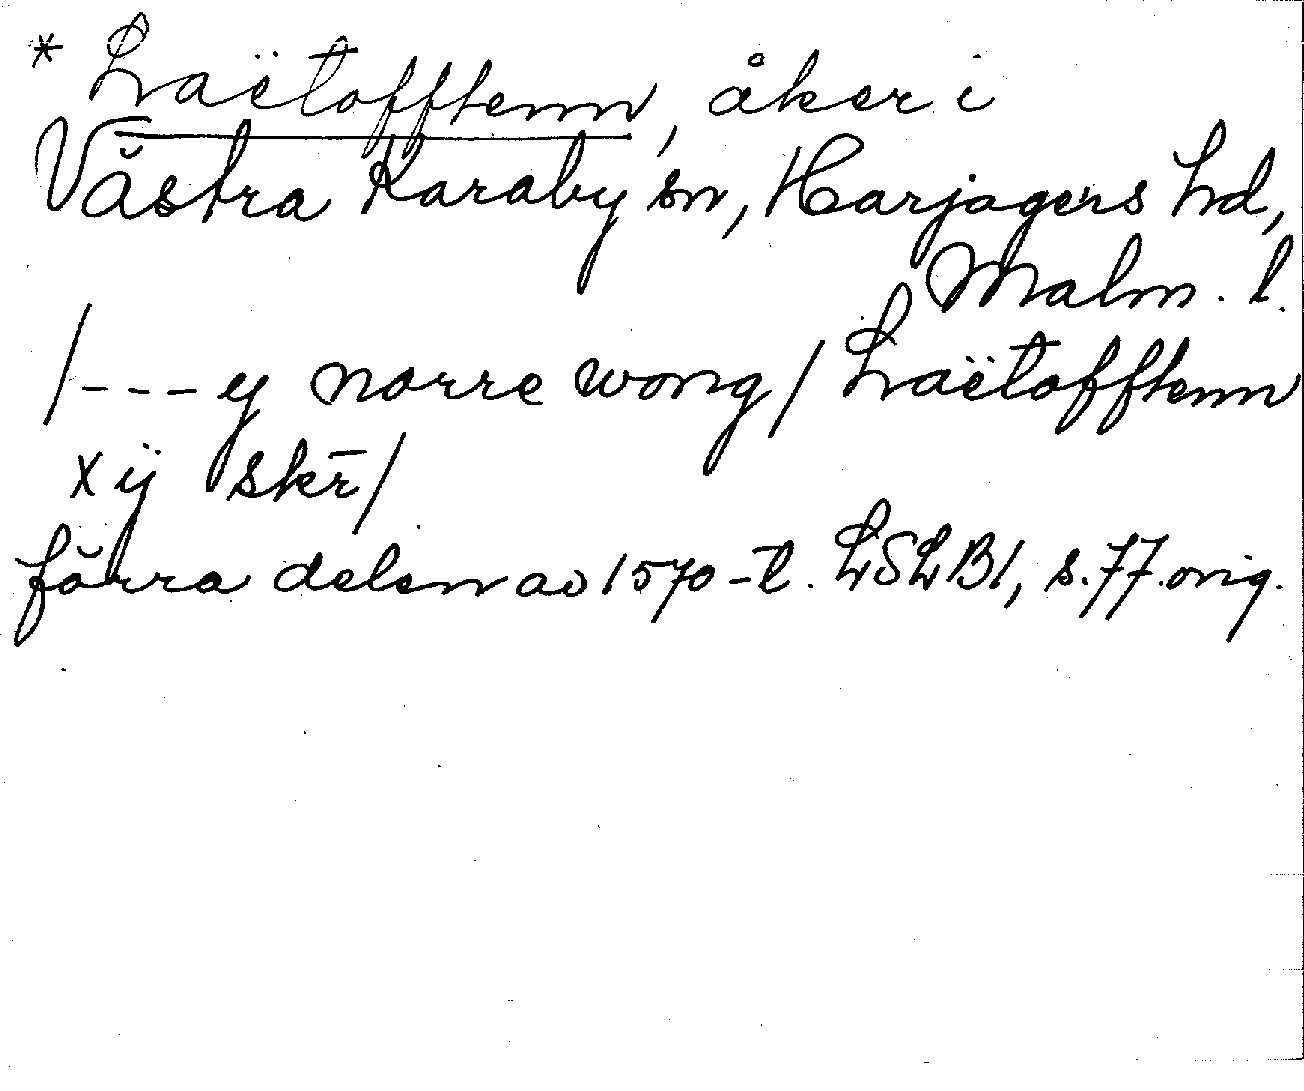 * Laëtofftenn, åker i
Västra Karaby sn, Harjagers hd,
Malm. l.
/--- y norre wong/ Laëtofftenn
xij skr̄/
förra delen av 1570-t. LSLB1, s. 77. orig.